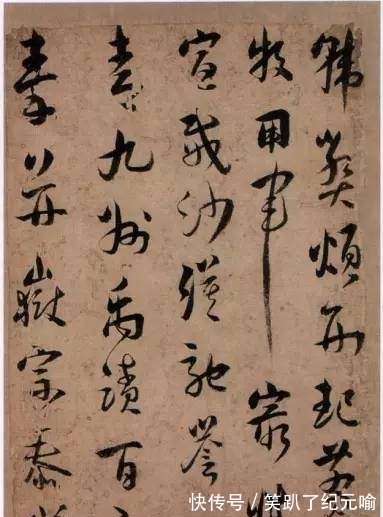 韓弊煩刑起翦
牧用軍最精
宣威沙漠馳譽
青九州禹蹟百
秦并嶽宗泰
快传号／笑趴了纪元喻